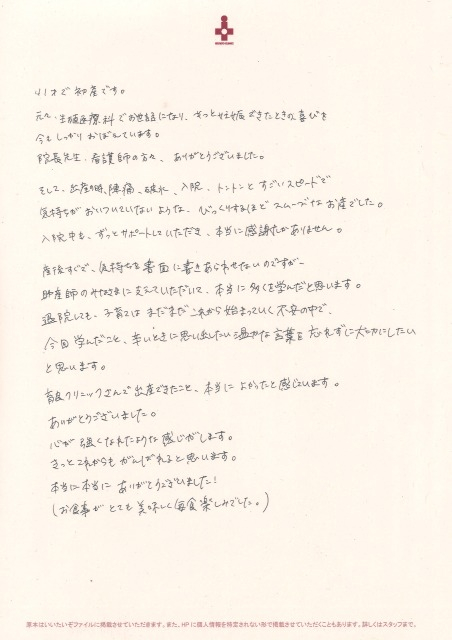 41才で初産です。
元々、生殖医療科でお世話になり、やっと妊娠できたときの喜びを
今もしっかりおぼえています。
院長先生、看護師の方々、ありがとうございました。
そして、出産の時、陣痛、破水、入院、トントンとすごいスピードで
気持ちがおいついていないような、びっくりするほどスムーズなお産でした。
入院中も、ずっとサポートしていただき、本当に感謝しかありません。
産後すぐで、気持ちを書面に書きあらわせないのですが、
助産師のみなさまに支えていただいて、本当に多くを学んだと思います。
退院しても、子育てはまだまだこれから始まっていく不安の中で、
今回学んだこと、辛いときに思い出したい温かな言葉を忘れずに大切にしたい
と思います。
クリニックさんで出産できたこと、本当によかったと感じています。
ありがとうございました。
心が強くなれたような感じがします。
きっとこれからもがんばれると思います。
本当に本当にありがとうございました!
(お食事がとても美味しく毎食楽しみでした。)
原本はいいたいぞファイルに掲載させていただきます。また、HPに個人情報を特定されない形で掲載させていただくこともあります。詳しくはスタッフまで。